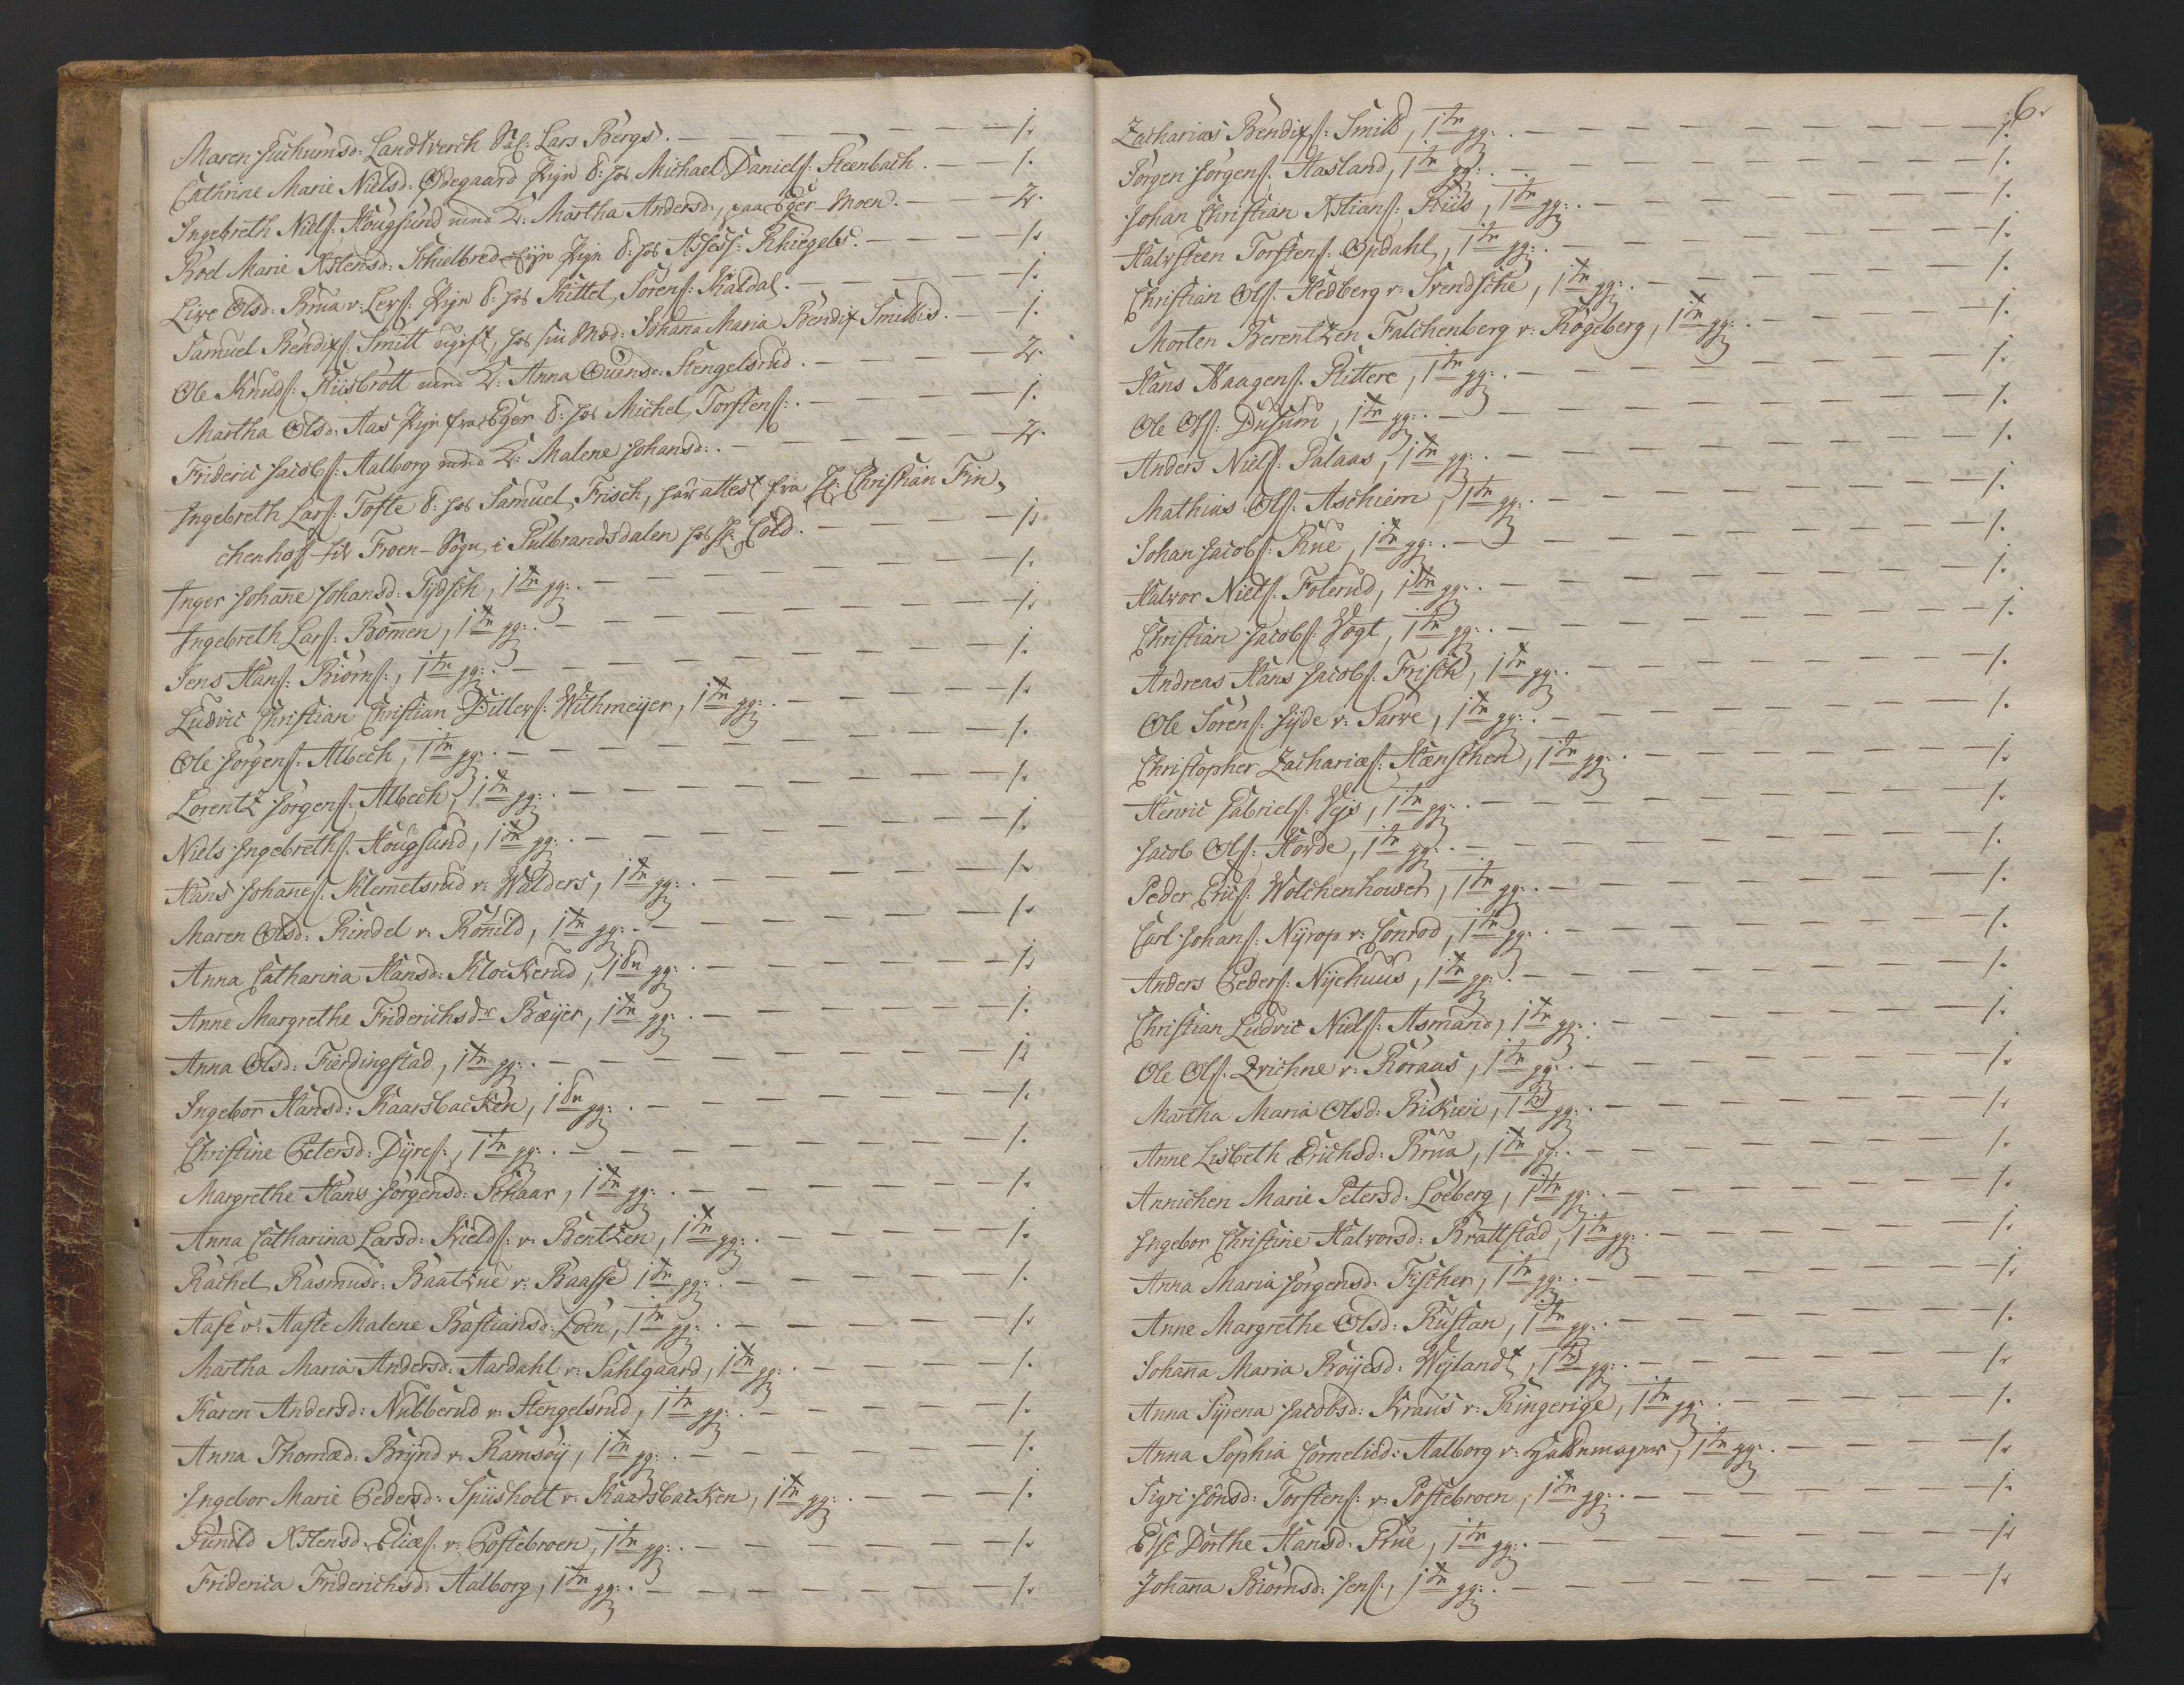 Maren Juchumsd: Landtverch Sal: Lars Bergs. — 1.
Cathrine Marie Nielsd: Ødegaard Pige t: hos Michael Danielſ: Steenbach. — 1.
Ingebreth Nielſ: Hougsund med K: Martha Andersd:, paa Eger-Moen. — 2.
Boel Marie Xstensd: Schielbred Pige t: hos Assess: Kriegels. — 1.
Live Olsd: Brua v: Lerſ: Pige t: hos Kittel Sörenſ: Kaldal. — 1.
Samuel Bendixſ: Smitt ugift, hos sin Mod: Johanna Maria Bendix Smitts. — 1.
Ole Knudſ: Kiisbrott med K: Anna Ouensd: Stengelsrud. — 2.
Martha Olsd: Aas Pige fra Eger t: hos Michel Torstenſ: — 1.
Frideric Jacobſ: Aalborg med K: Malene Johansd: — 2.
Ingebreth Larſ: Tofte t: hos Samuel Frisch, har attest fra Hr: Christian Fin-
chenhoff til Froen-Sogn i Gulbrandsdalen hos Hr: Cold. — 1.
Inger Johanne Johansd: Tydsch, 1te gg: — 1.
Ingebreth Larſ: Bömen, 1te gg: — 1.
Jens Hanſ: Biörnſ:, 1te gg: — 1.
Ludvic Christian Christian Ditlevſ: Withmeijer, 1te gg: — 1.
Ole Jörgenſ: Albech, 1te gg: — 1.
Lorentz Jörgenſ: Albech, 1te gg: — 1.
Niels Ingebrethſ: Hougsund, 1te gg: — 1.
Hans Johanneſ: Klemetsrud v: Walders, 1te gg: — 1.
Maren Olsd: Rindel v: Rönild, 1te gg: — 1.
Anna Catharina Hansd: Klockerud, 1te gg: — 1.
Anne Margrethe Friderichsdr Bæyer, 1te gg: — 1.
Anna Olsd: Fierdingstad, 1te gg: — 1.
Ingebor Hansd: Kaarsbacken, 1te gg: — 1.
Christine Petersd: Dyreſ:, 1te gg: — 1.
Margrethe Hans Jörgensd: Schaar, 1te gg: — 1.
Anna Catharina Larsd: Kieldſ: v: Bentzen, 1te gg: — 1.
Rachel Rasmusd: Baatzne v: Baasse 1te gg: — 1.
Aase v: Aaste Malene Bastiansd: Loen, 1te gg: — 1.
Martha Maria Andersd: Aardahl v: Sahlgaard, 1te gg: — 1.
Karen Andersd: Nubberud v: Stengelsrud, 1te gg: — 1.
Anna Thomæd: Brynd v: Ramsöy, 1te gg: — 1.
Ingebor Marie Pedersd: Spiisholt v: Kaarsbacken, 1te gg: — 1.
Gunild Xstensd: Eliæſ: v: Postebroen, 1te gg: — 1.
Friderica Friderichsd: Aalborg, 1te gg: — 1.
6.
Zacharias Bendixſ: Smitt, 1te gg: — 1.
Jörgen Jörgenſ: Hasland, 1te gg: — 1.
Johan Christian Xstianſ: Riis, 1te gg: — 1.
Halvsteen Torstenſ: Opdahl, 1te gg: — 1.
Christian Olſ: Hedberg v: Svendsche, 1te gg: — 1.
Morten Berentzen Falchenberg v: Rögeberg, 1te gg: — 1.
Hans Haagenſ: Rittere, 1te gg: — 1.
Ole Olſ: Dusum, 1te gg: — 1.
Anders Nielſ: Palaas, 1te gg: — 1.
Mathias Olſ: Aschiem, 1te gg: — 1.
Johan Jacobſ: Rue, 1te gg: — 1.
Halvor Nielſ: Foterud, 1te gg: — 1.
Christian Jacobſ: Vogt, 1te gg: — 1.
Andreas Hans Jacobſ: Frisch, 1te gg: — 1.
Ole Sörenſ: Hyde v: Sarve, 1te gg: — 1.
Christopher Zachariæſ: Hænschen, 1te gg: — 1.
Henric Gabrielſ: Vejs, 1te gg: — 1.
Jacob Olſ: Horde, 1te gg: — 1.
Peder Ericſ: Wolchenhower, 1te gg: — 1.
Carl Johanſ: Nyrop v: Conrod, 1te gg: — 1.
Anders Pederſ: Nyehuus, 1te gg: — 1.
Christian Ludvic Nielſ: Asmand, 1te gg: — 1.
Ole Olſ: Zvichne v: Röraas, 1te gg: — 1.
Martha Maria Olsd: Bikieri, 1te gg: — 1.
Anne Lisbeth Erichsd: Brua, 1te gg: — 1.
Annichen Marie Petersd: Loeberg, 1te gg: — 1.
Ingebor Christine Halvorsd: Brattstad, 1te gg: — 1.
Anna Maria Jörgensd: Fischer, 1te gg: — 1.
Anne Margrethe Olsd: Rustan, 1te gg: — 1.
Johanna Maria Böyesd: Weylandt, 1te gg: — 1.
Anna Syrena Jacobsd: Kraus v: Ringerige, 1te gg: — 1.
Anna Sophia Corneliid: Aalborg v: Hattemager, 1te gg: — 1.
Sigri Jönsd: Torstenſ: v: Postebroen, 1te gg: — 1.
Else Dorthe Hansd: Rue, 1te gg: — 1.
Johanna Biornsd: Jenſ:, 1te gg: — 1.